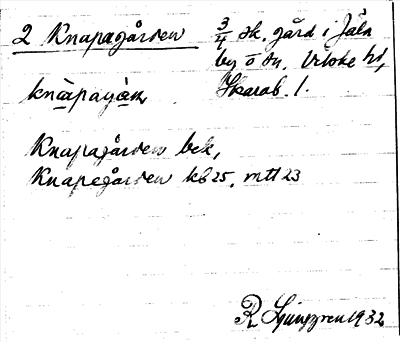 2 Knapagården
3/4 sk. gård i Jäla
by o sn, Vilske hd,
Skarab. l.
knàpagàɳ
Knapagården bek,
Knapegården kb 25, mtl 23
R Ljunggren 1932